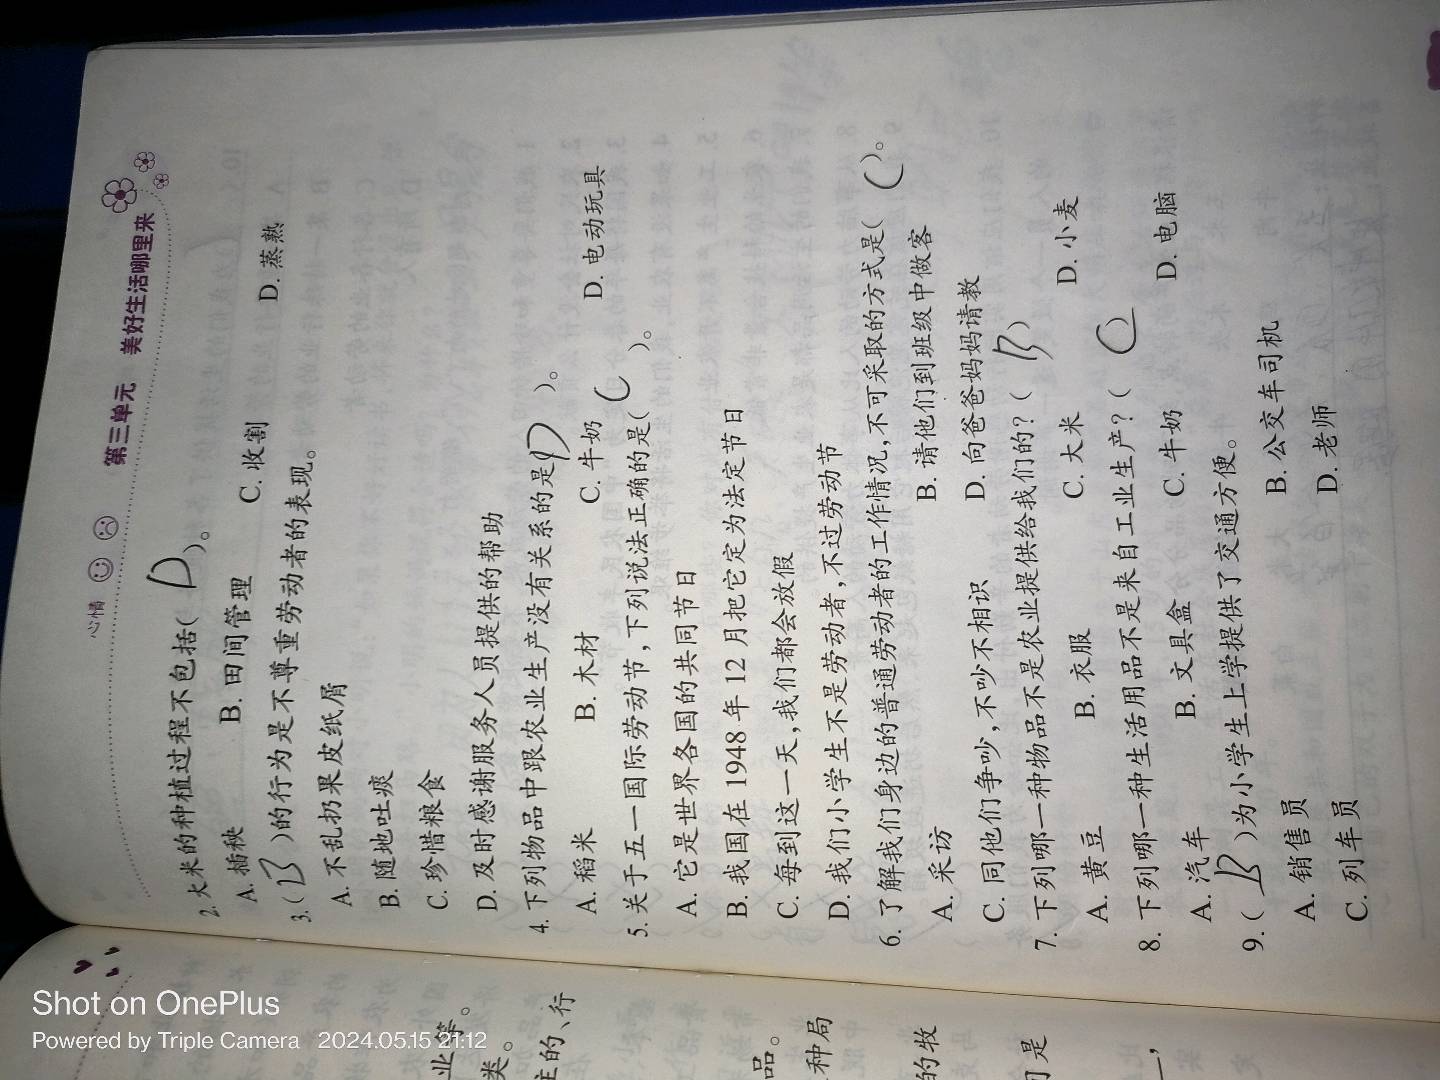 心情
第三单元 美好生活哪里来
2. 大米的种植过程不包括( D )。
A. 插秧 B. 田间管理 C. 收割 D. 蒸熟
3. ( B )的行为是不尊重劳动者的表现。
A. 不乱扔果皮纸屑
B. 随地吐痰
C. 珍惜粮食
D. 及时感谢服务人员提供的帮助
4. 下列物品中跟农业生产没有关系的是( D )。
A. 稻米 B. 木材 C. 牛奶 D. 电动玩具
5. 关于五一国际劳动节,下列说法正确的是( C )。
A. 它是世界各国的共同节日
B. 我国在 1948 年 12 月把它定为法定节日
C. 每到这一天,我们都会放假
D. 我们小学生不是劳动者,不过劳动节
6. 了解我们身边的普通劳动者的工作情况,不可采取的方式是( C )。
A. 采访 B. 请他们到班级中做客
C. 同他们争吵,不吵不相识 D. 向爸爸妈妈请教
7. 下列哪一种物品不是农业提供给我们的?( B )
A. 黄豆 B. 衣服 C. 大米 D. 小麦
8. 下列哪一种生活用品不是来自工业生产?( C
A. 汽车 B. 文具盒 C. 牛奶 D. 电脑
9. ( B )为小学生上学提供了交通方便。
A. 销售员 B. 公交车司机
C. 列车员 D. 老师
业等。
类。
主的、行
品。
种局
的牧
Shot on OnePlus
Powered by Triple Camera 2024.05.15 21:12